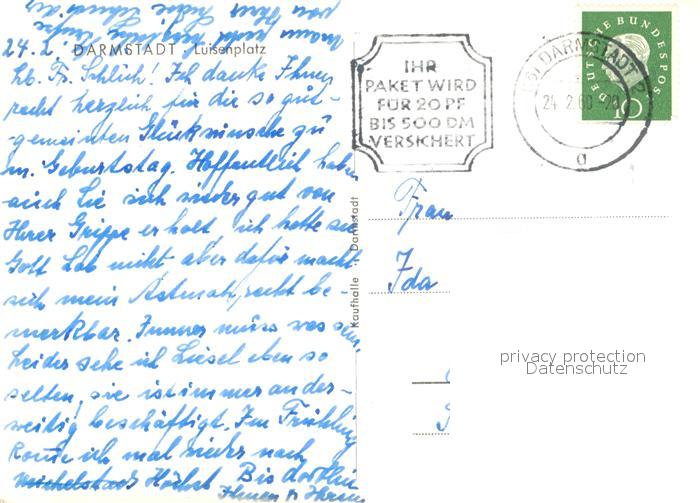 24.2.
DARMSTADT · Luisenplatz
Lb. Fr. Schlich! Ich danke Ihnen
recht herzlich für die so gut-
gemeinten Glückwünsche zu
m. Geburtstag. Hoffentlich haben
auch Sie sich wieder gut von
Ihrer Grippe erholt, ich hatte sie
Gott Lob nicht aber dafür macht
sich mein Astmah recht be-
merkbar. Immer muss was sein.
Leider sehe ich Liesel eben so
selten, sie ist immer ander-
weitig beschäftigt. Im Frühling
komme ich mal wieder nach
Höchst Bis dorthin
Ihnen
Kaufhalle · Darmstadt
IHR
PAKET WIRD
FÜR 20 PF
BIS 500 DM
VERSICHERT
DARMSTADT 2
24.2.60
a
DEUTSCHE BUNDESPOST
10
Frau
Ida
privacy protection
Datenschutz